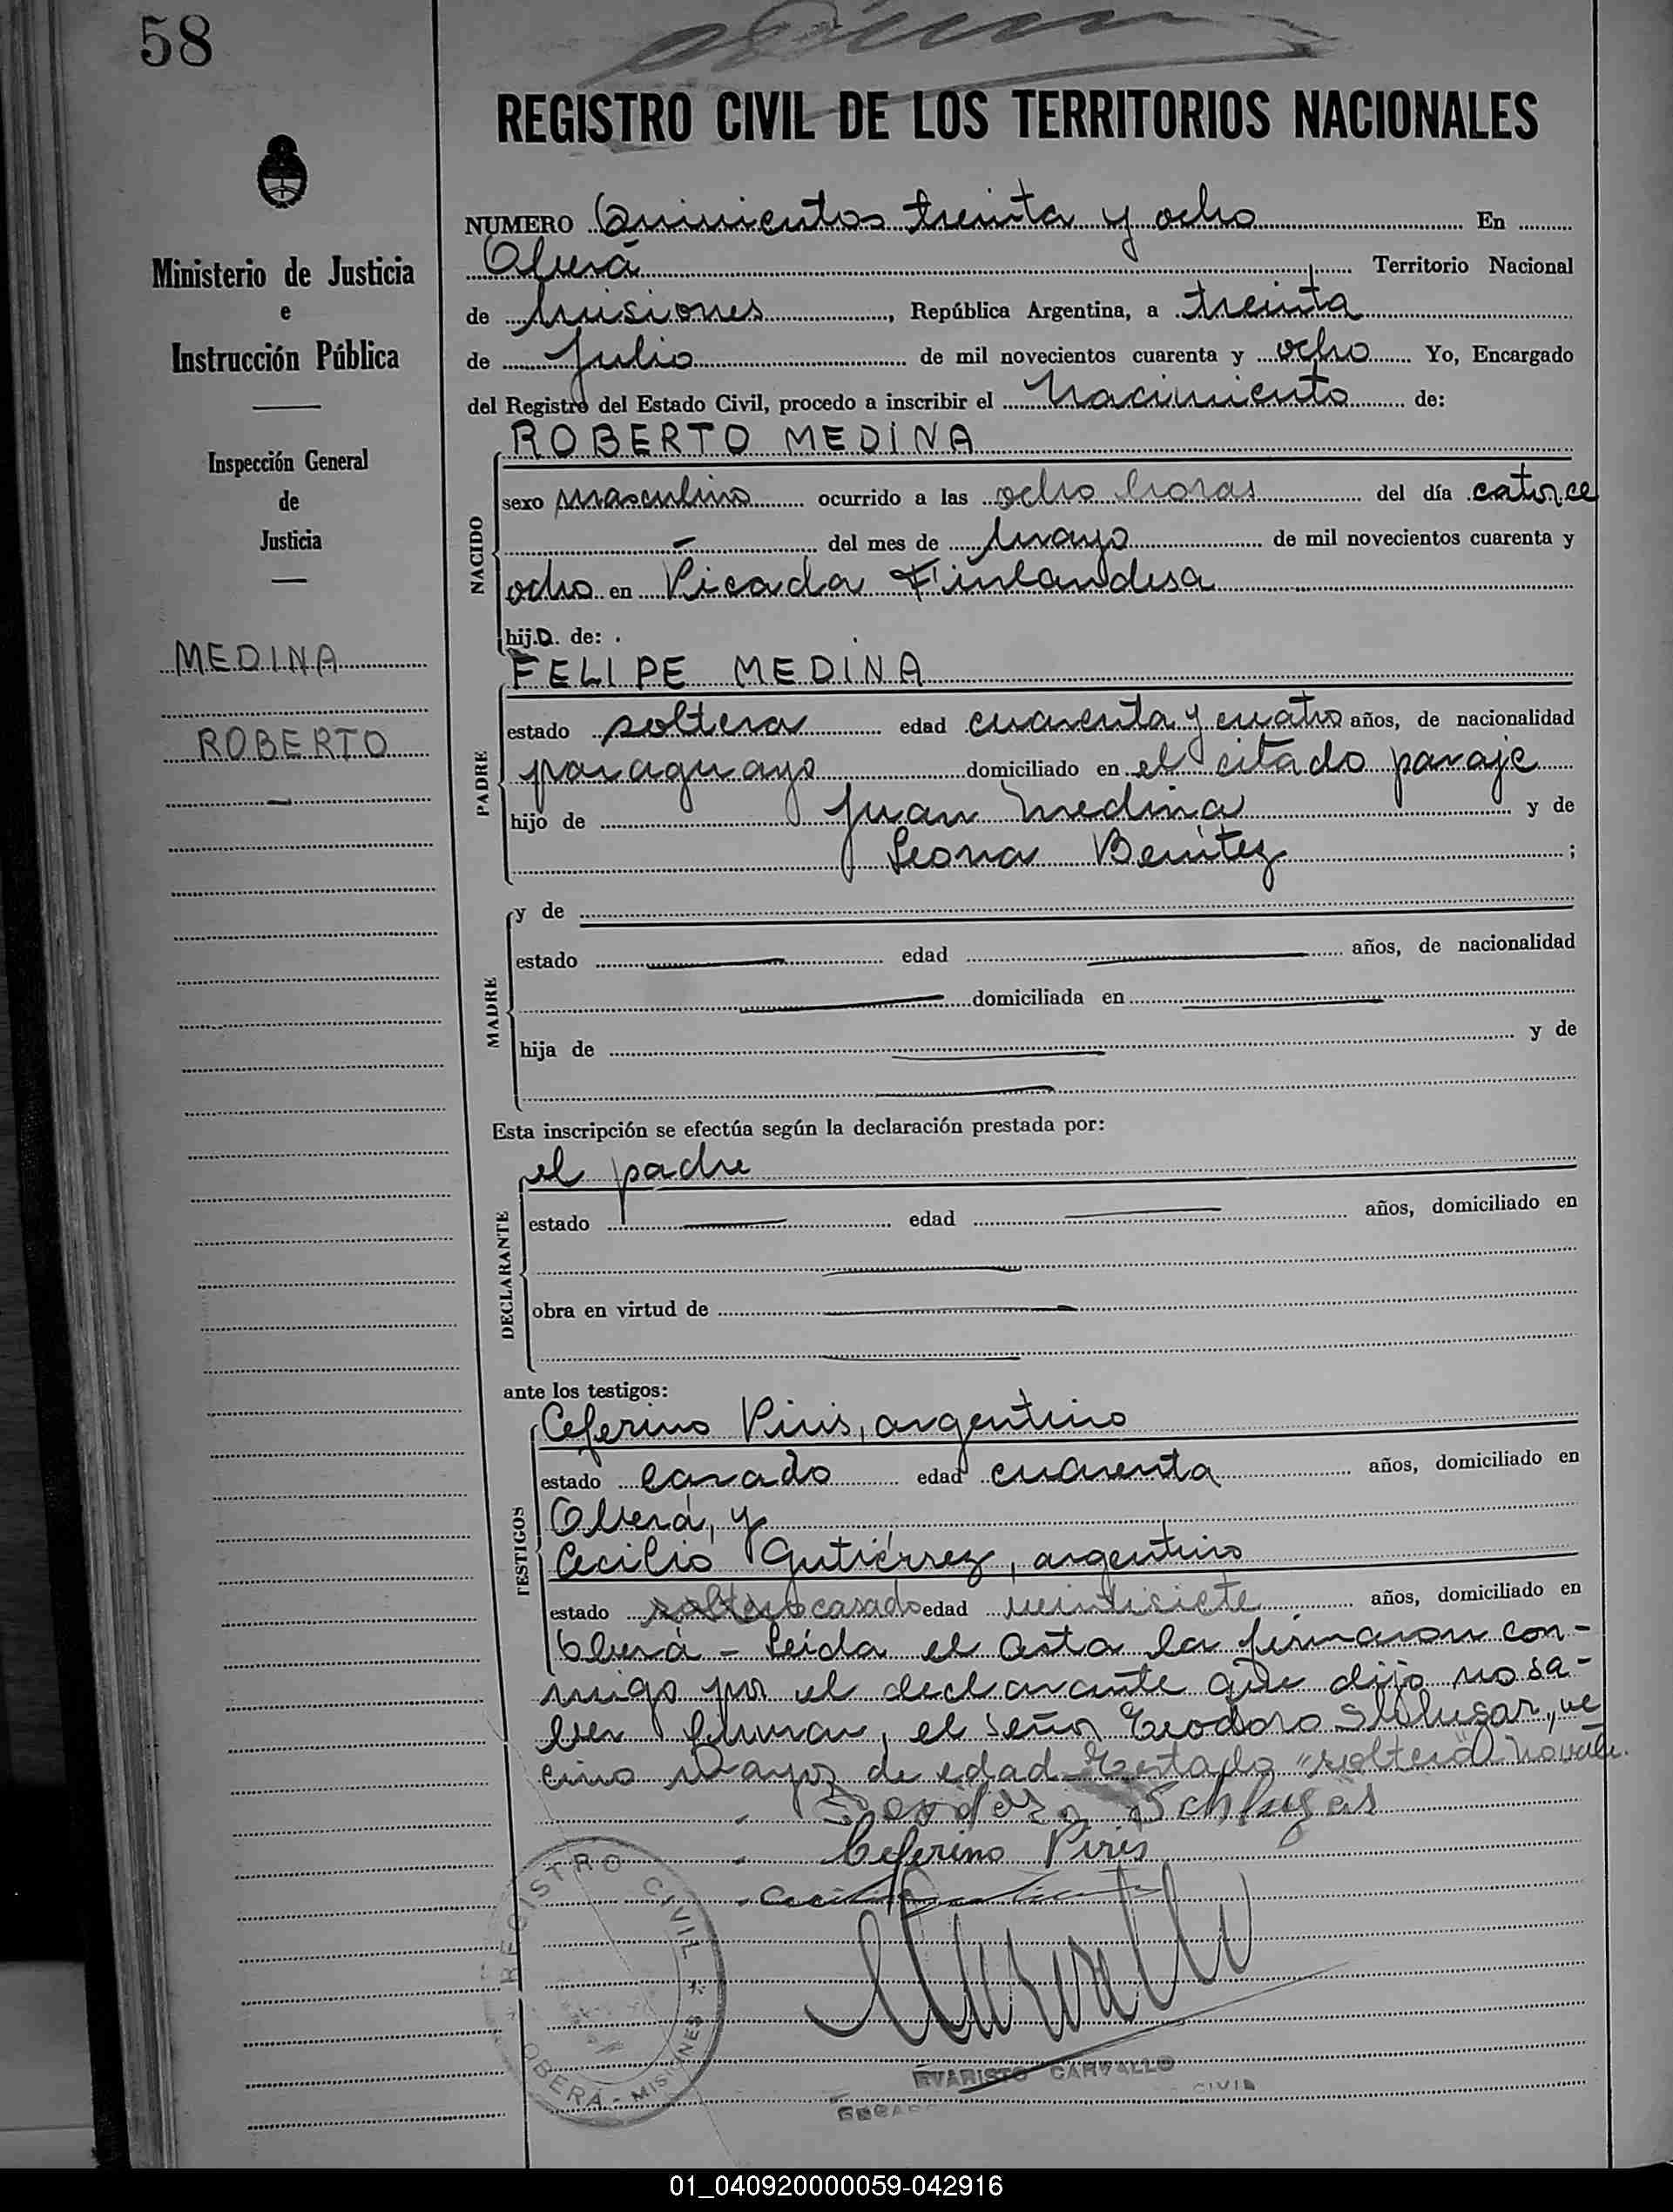 58
REGISTRO CIVIL DE LOS TERRITORIOS NACIONALES
Ministerio de Justicia
e
Instrucción Pública
Inspección General
de
Justicia
MEDINA
ROBERTO
NUMERO Quinientos treinta y ocho En
Oberá Territorio Nacional
de Misiones, República Argentina, a treinta
de Julio de mil novecientos cuarenta y ocho Yo, Encargado
del Registro del Estado Civil, procedo a inscribir el Nacimiento de:
NACIDO
ROBERTO MEDINA
sexo masculino ocurrido a las ocho horas del día catorce
- del mes de Mayo de mil novecientos cuarenta y
ocho en Picada Finlandesa
hijo de:
PADRE
FELIPE MEDINA
estado soltero edad cuarenta y cuatro años, de nacionalidad
paraguayo domiciliado en el citado paraje
hijo de Juan Medina y de
Leona Benítez;
MADRE
y de
estado edad años, de nacionalidad
domiciliada en
hija de y de
Esta inscripción se efectúa según la declaración prestada por:
DECLARANTE
el padre
estado edad años, domiciliado en
obra en virtud de
ante los testigos:
TESTIGOS
Ceferino Piris, argentino
estado casado edad cuarenta años, domiciliado en
Oberá, y
Cecilio Gutiérrez, argentino
estado soltero casado edad veintisiete años, domiciliado en
Oberá - Leída el acta la firmaron con-
migo por el declarante que dijo no sa-
ber firmar, el señor Teodoro ve
cino mayor de edad Testado "soltero" No vale.
Ceferino Piris
Cecilio
REGISTRO CIVIL * OBERÁ - MISIONES *
EVARISTO CARVALLO
CIVIL
01_040920000059-042916